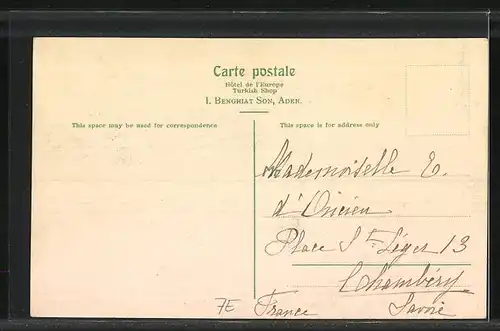 Carte postale
Hôtel de l'Europe
Turkish Shop
I. Benghiat Son, Aden.
This space may be used for correspondence
This space is for address only
Mademoiselle E.
d'Oncieu
Place St Léger 13
Chambéry
France Savoie
7E